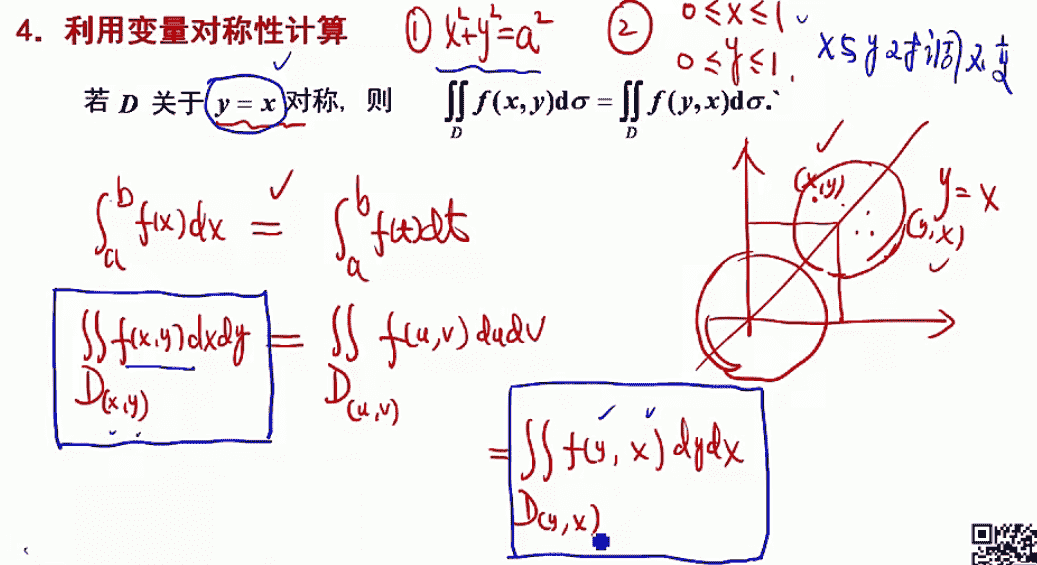 4. 利用变量对称性计算
① x²+y²=a²
② 0≤x≤1
0≤y≤1.
x与y对调不变
若 D 关于 y = x 对称, 则 ∬_D f(x,y)dσ = ∬_D f(y,x)dσ.
∫_a^b f(x)dx = ∫_a^b f(t)dt
(x,y)
y=x
(y,x)
∬_{D(x,y)} f(x,y)dxdy = ∬_{D(u,v)} f(u,v)dudv
= ∬_{D(y,x)} f(y,x)dydx